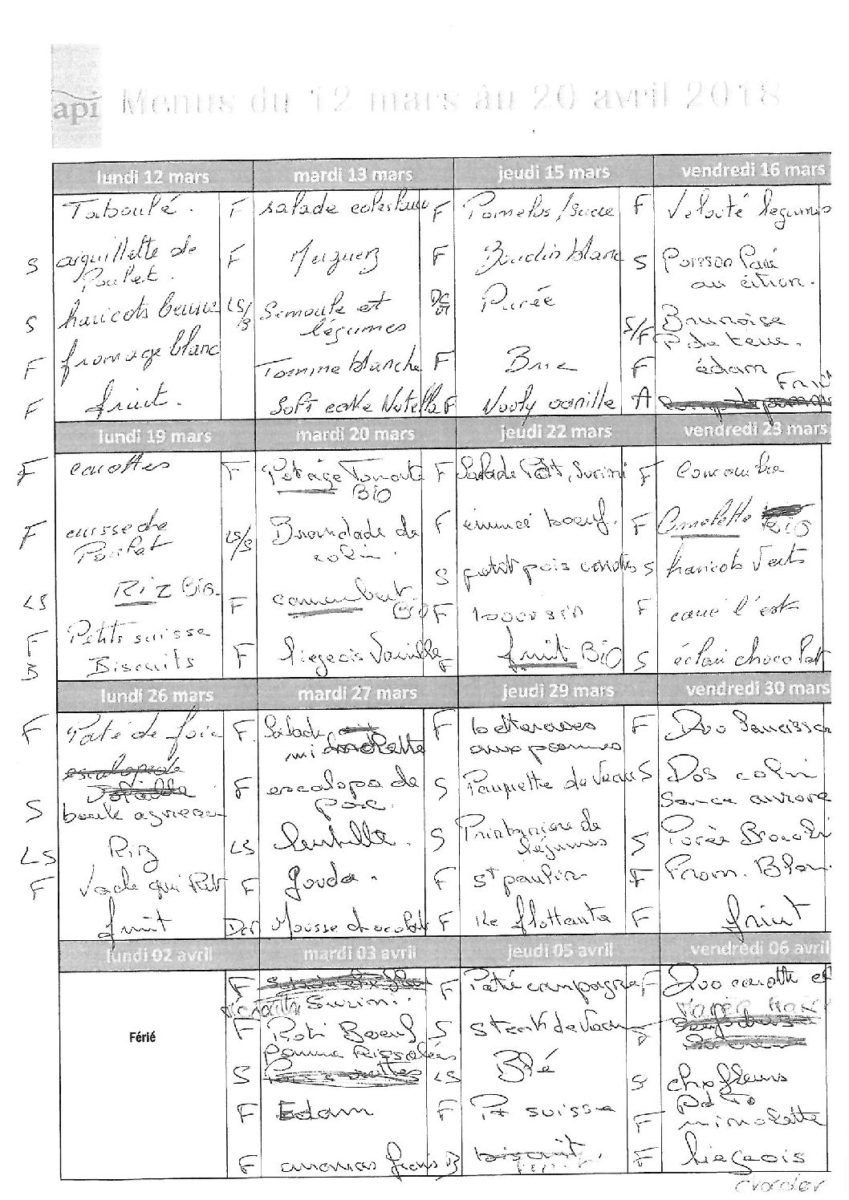 api Menus du 12 mars au 20 avril 2018
lundi 12 mars mardi 13 mars jeudi 15 mars vendredi 16 mars
Taboulé. F salade F Pomelos/sucre F Velouté légumes
S aiguillette de F Merguez F Boudin blanc S Poisson Pané
Poulet. au citron.
S haricots beurre LS/B Semoule et Purée S/F Brunoise
légumes P de terre.
F fromage blanc Tomme blanche F Brie F édam
F fruit. Soft cake Nutella F vanille A Fruit
lundi 19 mars mardi 20 mars jeudi 22 mars vendredi 23 mars
F carottes F Potage Tomate F Salade Pdt, Surimi F Concombre
BIO
F cuisse de LS/S Brandade de F émincé boeuf. F Omelette BIO
Poulet colin.
LS Riz Bio. F camembert S petit pois carottes S haricots Verts
BIO
F Petits suisse F liegeois Vanille F F carré l'est
B Biscuits F fruit BIO S éclair chocolat
lundi 26 mars mardi 27 mars jeudi 29 mars vendredi 30 mars
F Paté de foie F. Salade F betteraves F Duo Saucisson
mimolette aux pommes
F escalope de S Paupiette de Veau S Dos colin
S boule agneau porc. Sauce aurore
LS Riz LS lentille. S Printanière de S Purée Brocoli
légumes
F Vache qui Rit F Gouda. F st paulin F From. Blanc
fruit Des Mousse chocolat F ile flottante F fruit
lundi 02 avril mardi 03 avril jeudi 05 avril vendredi 06 avril
Férié F Surimi. F Paté campagne F Duo carotte et
F Roti Boeuf S steak de Veau
Pomme Rissolées
S LS Blé S chofleurs
Pdt
F Edam F Pt suisse F mimolette
F ananas frais B biscuit. F liegeois